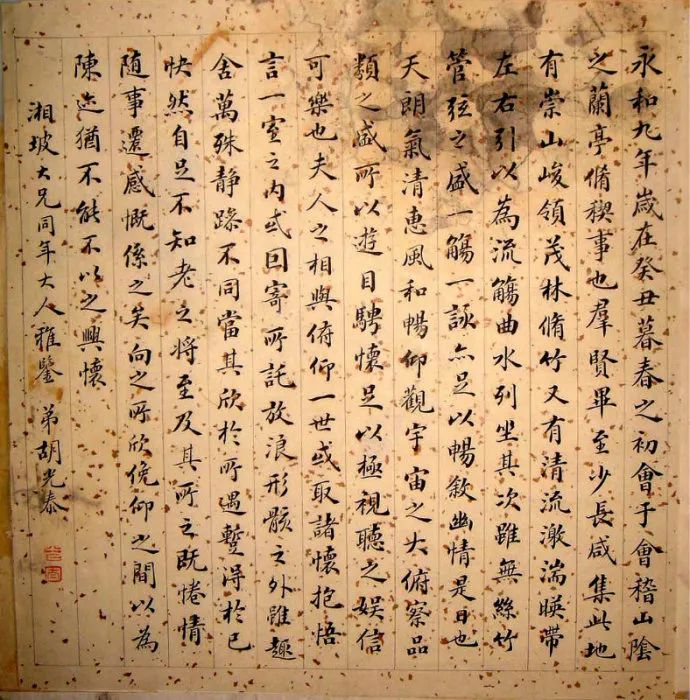 永和九年歲在癸丑暮春之初會于會稽山陰
之蘭亭脩稧事也羣賢畢至少長咸集此地
有崇山峻領茂林脩竹又有清流激湍暎帶
左右引以為流觴曲水列坐其次雖無絲竹
管弦之盛一觴一詠亦足以暢敘幽情是日也
天朗氣清惠風和暢仰觀宇宙之大俯察品
類之盛所以遊目騁懷足以極視聽之娛信
可樂也夫人之相與俯仰一世或取諸懷抱悟
言一室之內或囙寄所託放浪形骸之外雖趣
舍萬殊静躁不同當其欣於所遇蹔得於己
快然自足不知老之将至及其所之既惓情
随事遷感慨係之矣向之所欣俛仰之間以為
陳迹猶不能不以之興懷
湘坡大兄同年大人雅鑒 弟胡光泰